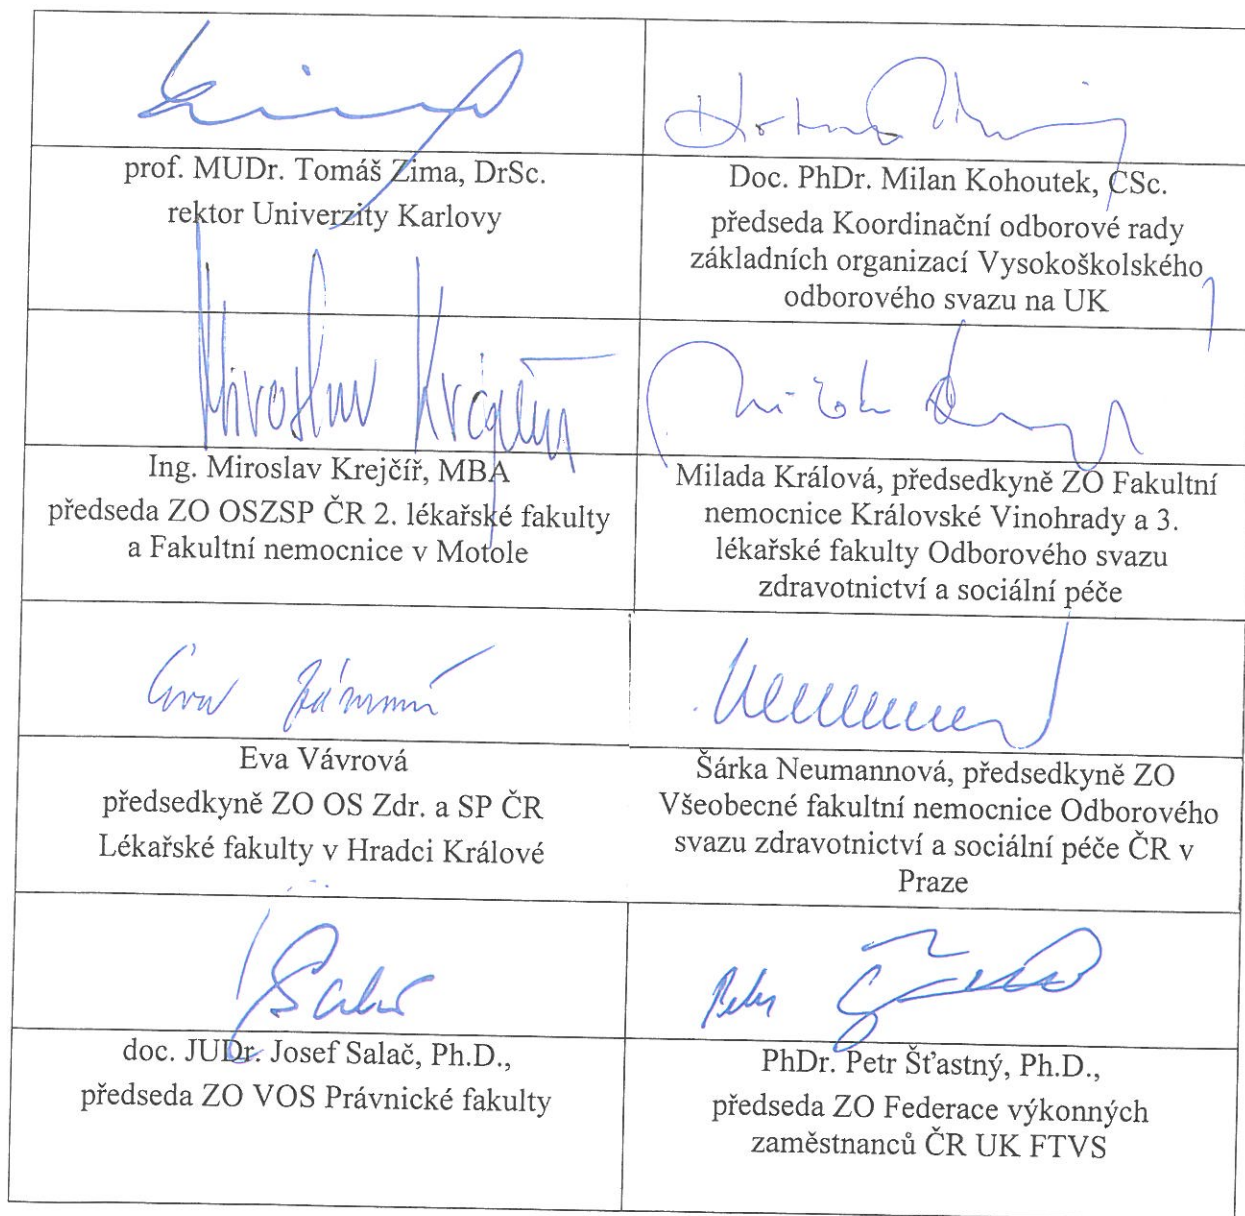 prof. MUDr. Tomáš Zima, DrSc.
rektor Univerzity Karlovy
Doc. PhDr. Milan Kohoutek, CSc.
předseda Koordinační odborové rady
základních organizací Vysokoškolského
odborového svazu na UK
Miroslav Krejčíř
Ing. Miroslav Krejčíř, MBA
předseda ZO OSZSP ČR 2. lékařské fakulty
a Fakultní nemocnice v Motole
Milada Králová, předsedkyně ZO Fakultní
nemocnice Královské Vinohrady a 3.
lékařské fakulty Odborového svazu
zdravotnictví a sociální péče
Eva Vávrová
předsedkyně ZO OS Zdr. a SP ČR
Lékařské fakulty v Hradci Králové
Šárka Neumannová, předsedkyně ZO
Všeobecné fakultní nemocnice Odborového
svazu zdravotnictví a sociální péče ČR v
Praze
doc. JUDr. Josef Salač, Ph.D.,
předseda ZO VOS Právnické fakulty
PhDr. Petr Šťastný, Ph.D.,
předseda ZO Federace výkonných
zaměstnanců ČR UK FTVS